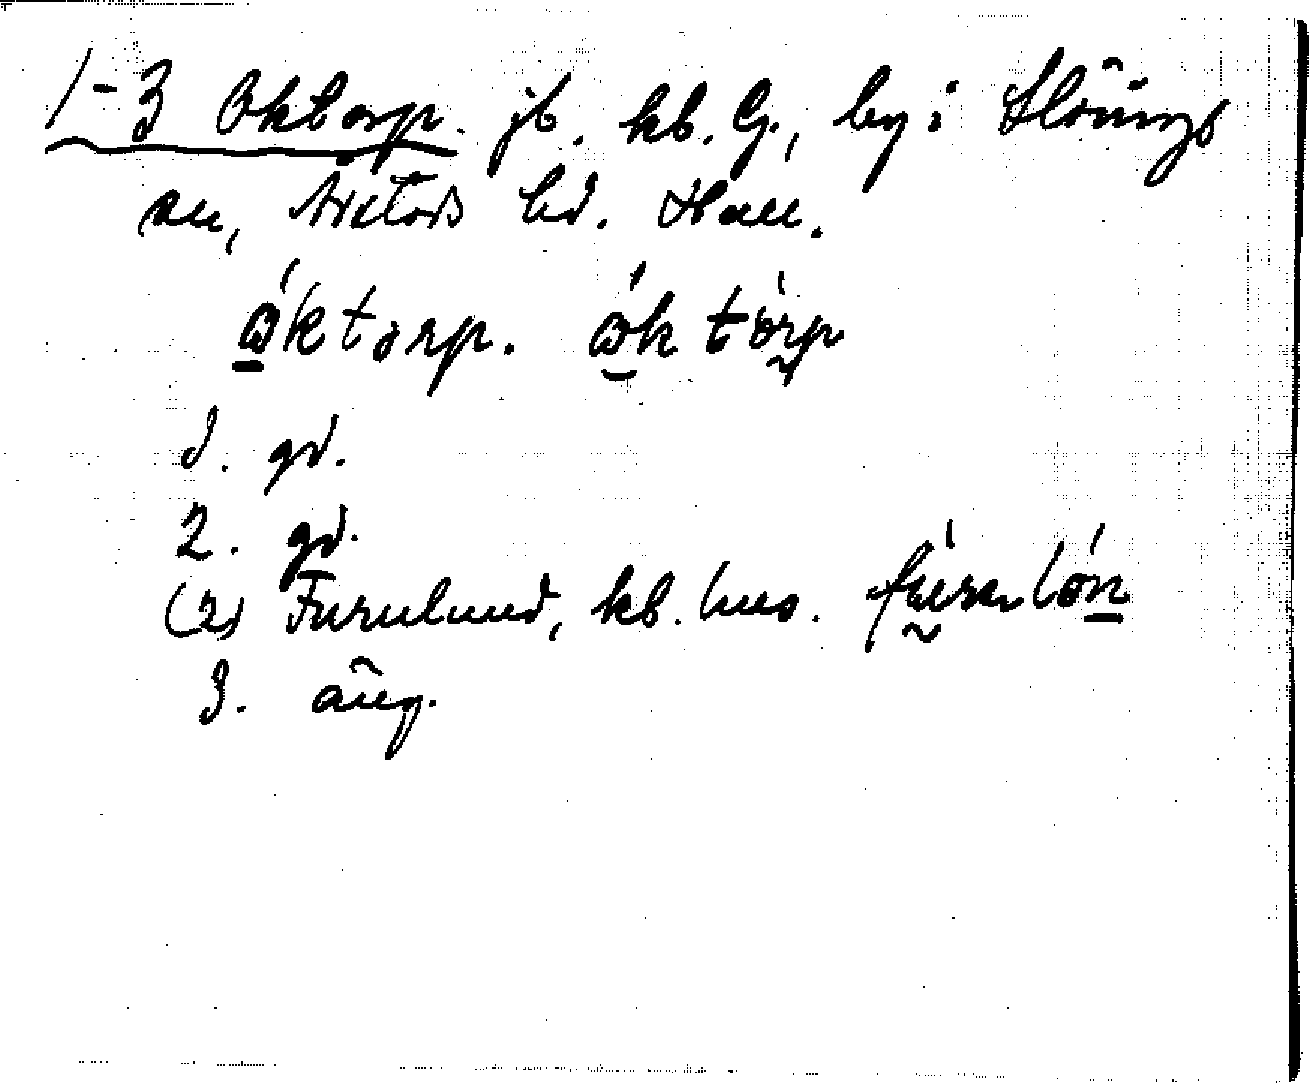 1-3 Oktorp. jb. kb. G., by i Slöinge
sn, Årstads hd. Hall.
óktorp. ók tórp
1. gd.
2. gd.
(2) Furulund, kb. hus.
3. äng.